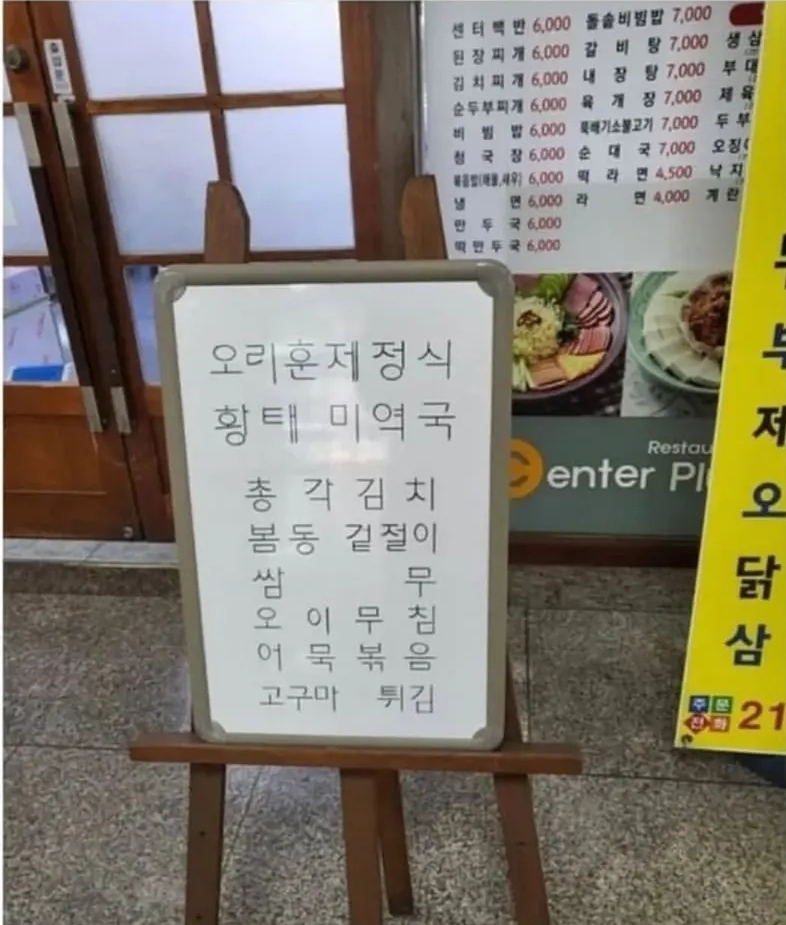 출입문
센터백반 6,000 돌솥비빔밥 7,000
된장찌개 6,000 갈비탕 7,000 생삼
김치찌개 6,000 내장탕 7,000 부대
순두부찌개 6,000 육개장 7,000 제육
비빔밥 6,000 뚝배기소불고기 7,000 두부
청국장 6,000 순대국 7,000 오징어
볶음밥(해물,새우) 6,000 떡라면 4,500 낙지
냉면 6,000 라면 4,000 계란
만두국 6,000
떡만두국 6,000
오리훈제정식
황태 미역국
총각김치
봄동 겉절이
쌈무
오이무침
어묵볶음
고구마 튀김
Restau
Center Pl
부
제
오
닭
삼
주문
전화 21